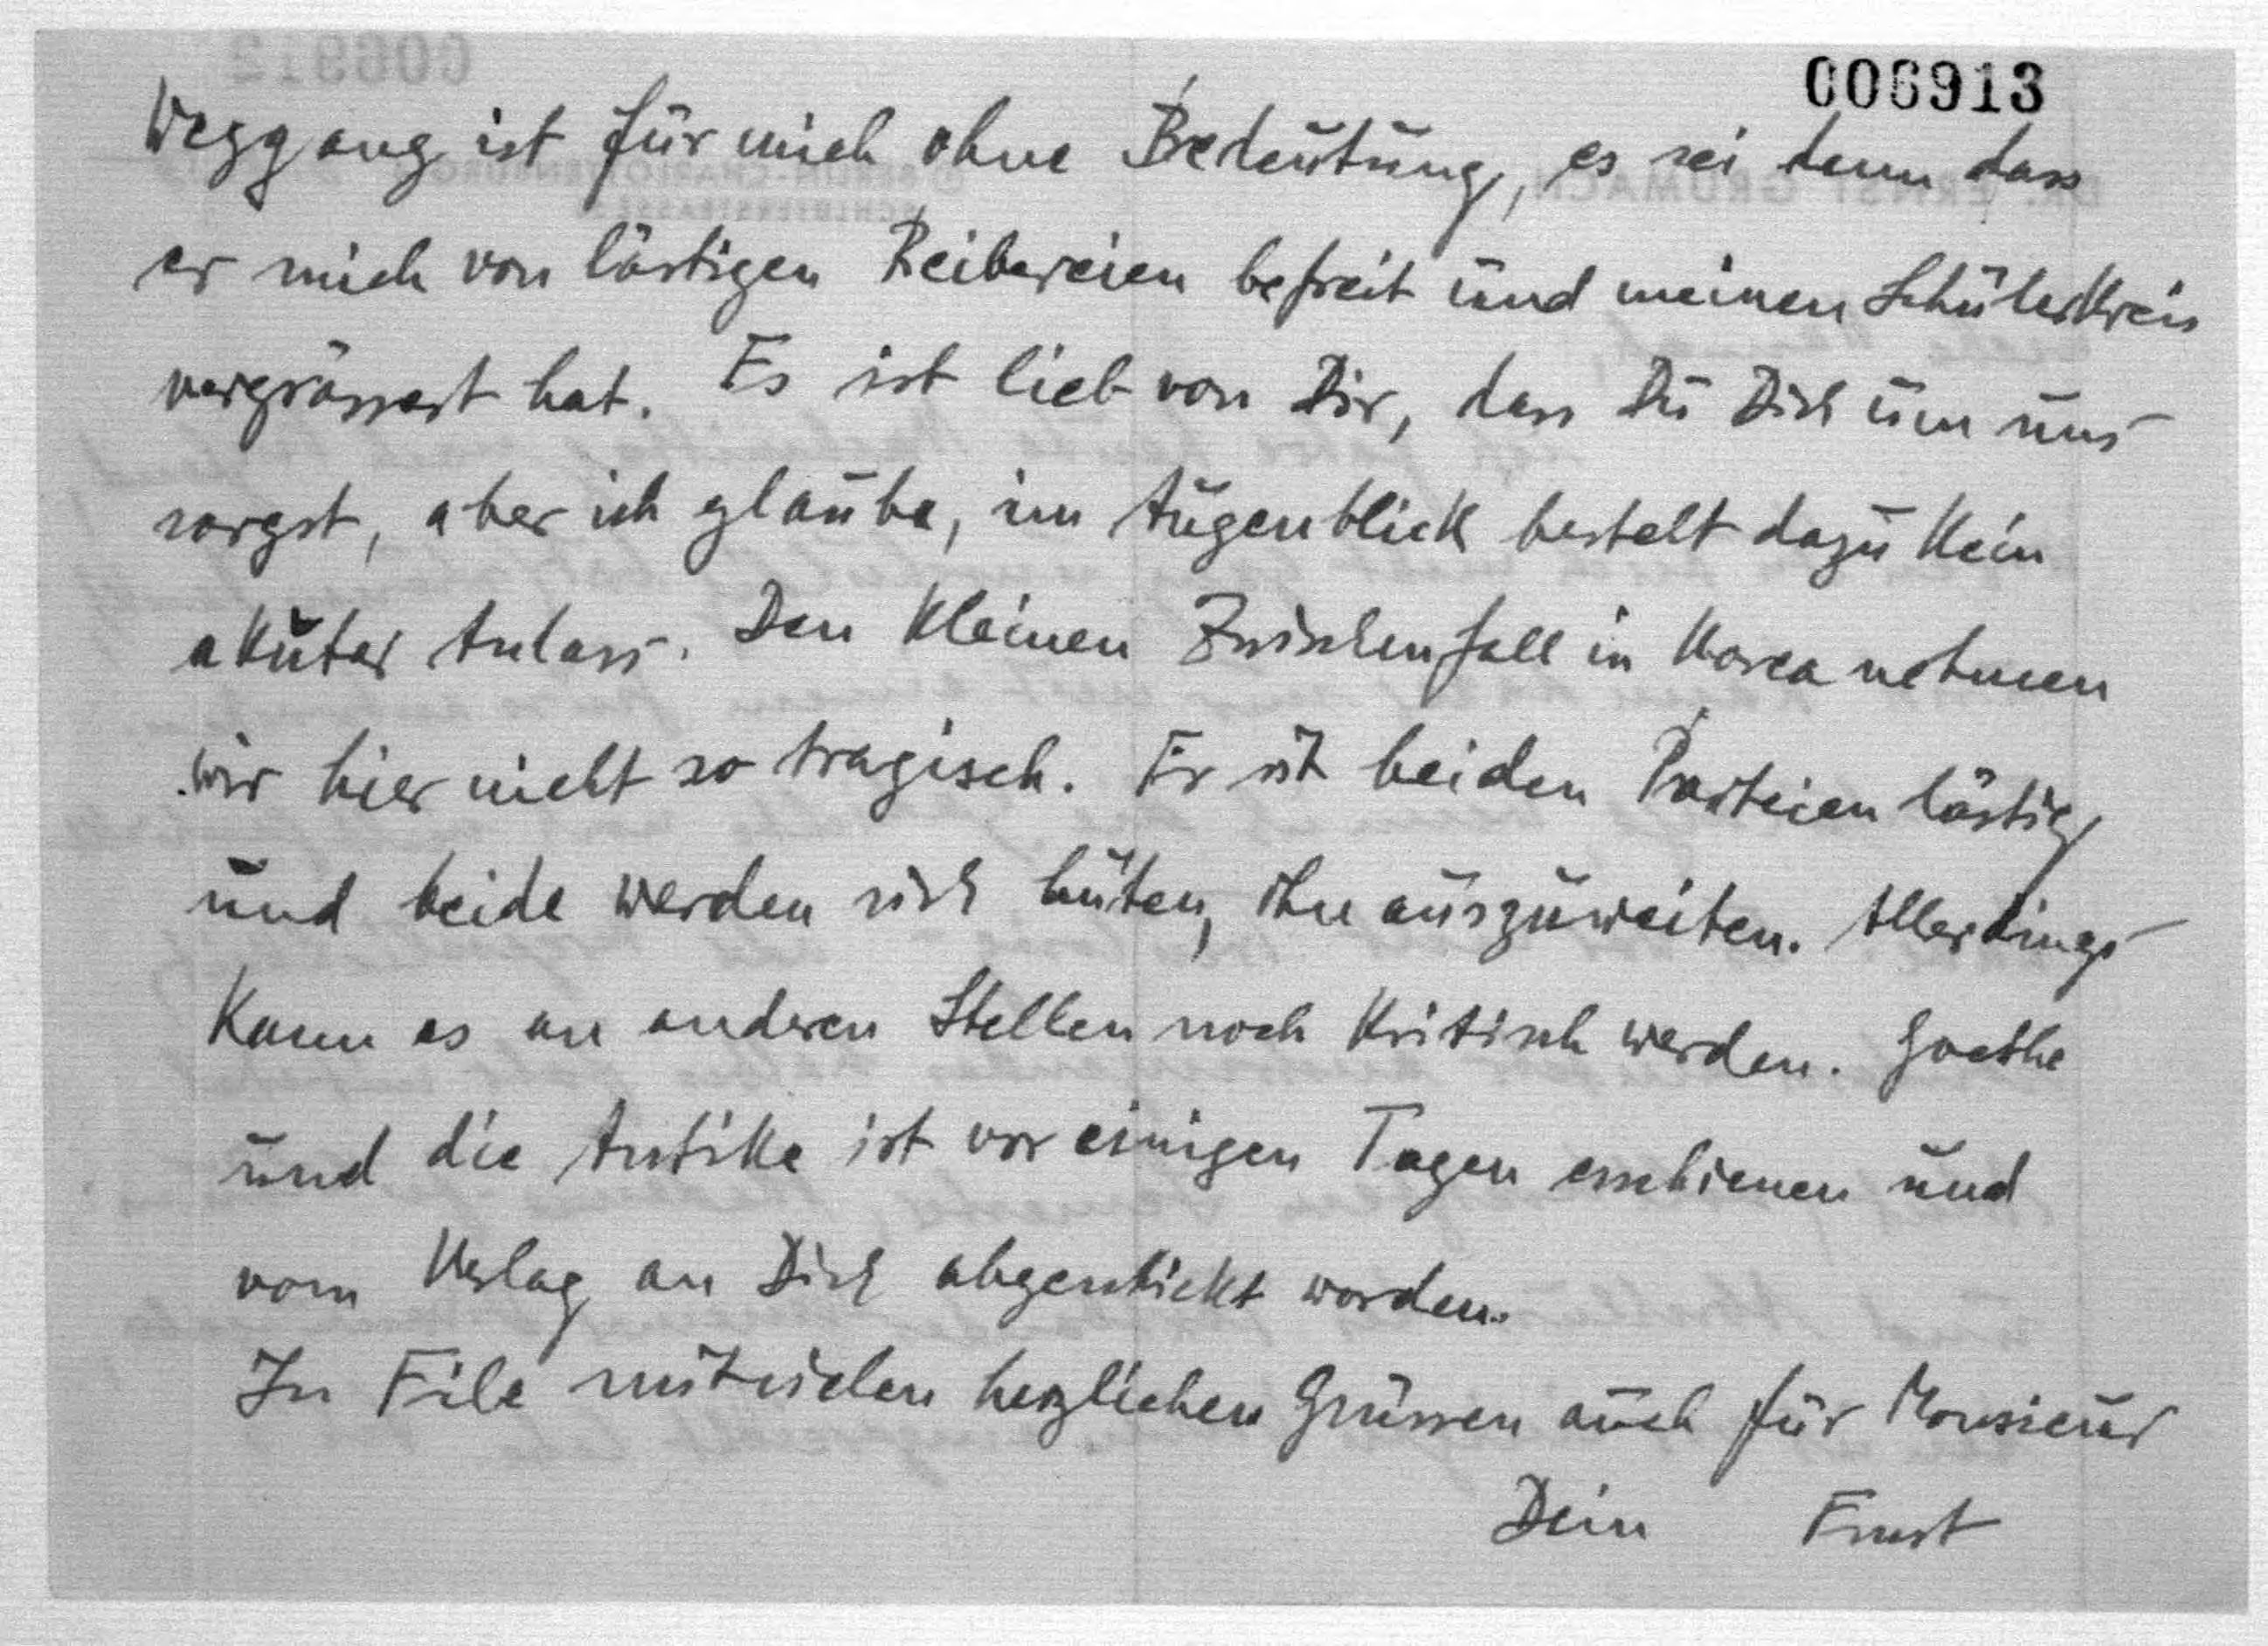 006913
Weggang ist für mich ohne Bedeutung, es sei denn dass
er mich von lästigen Reibereien befreit und meinen Schülerkreis
vergrössert hat. Es ist lieb von Dir, dass Du Dich um uns
sorgst, aber ich glaube, im Augenblick besteht dazu kein
akuter Anlass. Den kleinen Zwischenfall in Korea nehmen
wir hier nicht so tragisch. Er ist beiden Parteien lästig
und beide werden sich hüten, ihn auszuweiten. Allerdings
kann es an anderen Stellen noch kritisch werden. Goethe
und die Antike ist vor einigen Tagen erschienen und
vom Verlag an Dich abgeschickt worden.
In Eile mit vielen herzlichen Grüssen auch für Monsieur
Dein Ernst